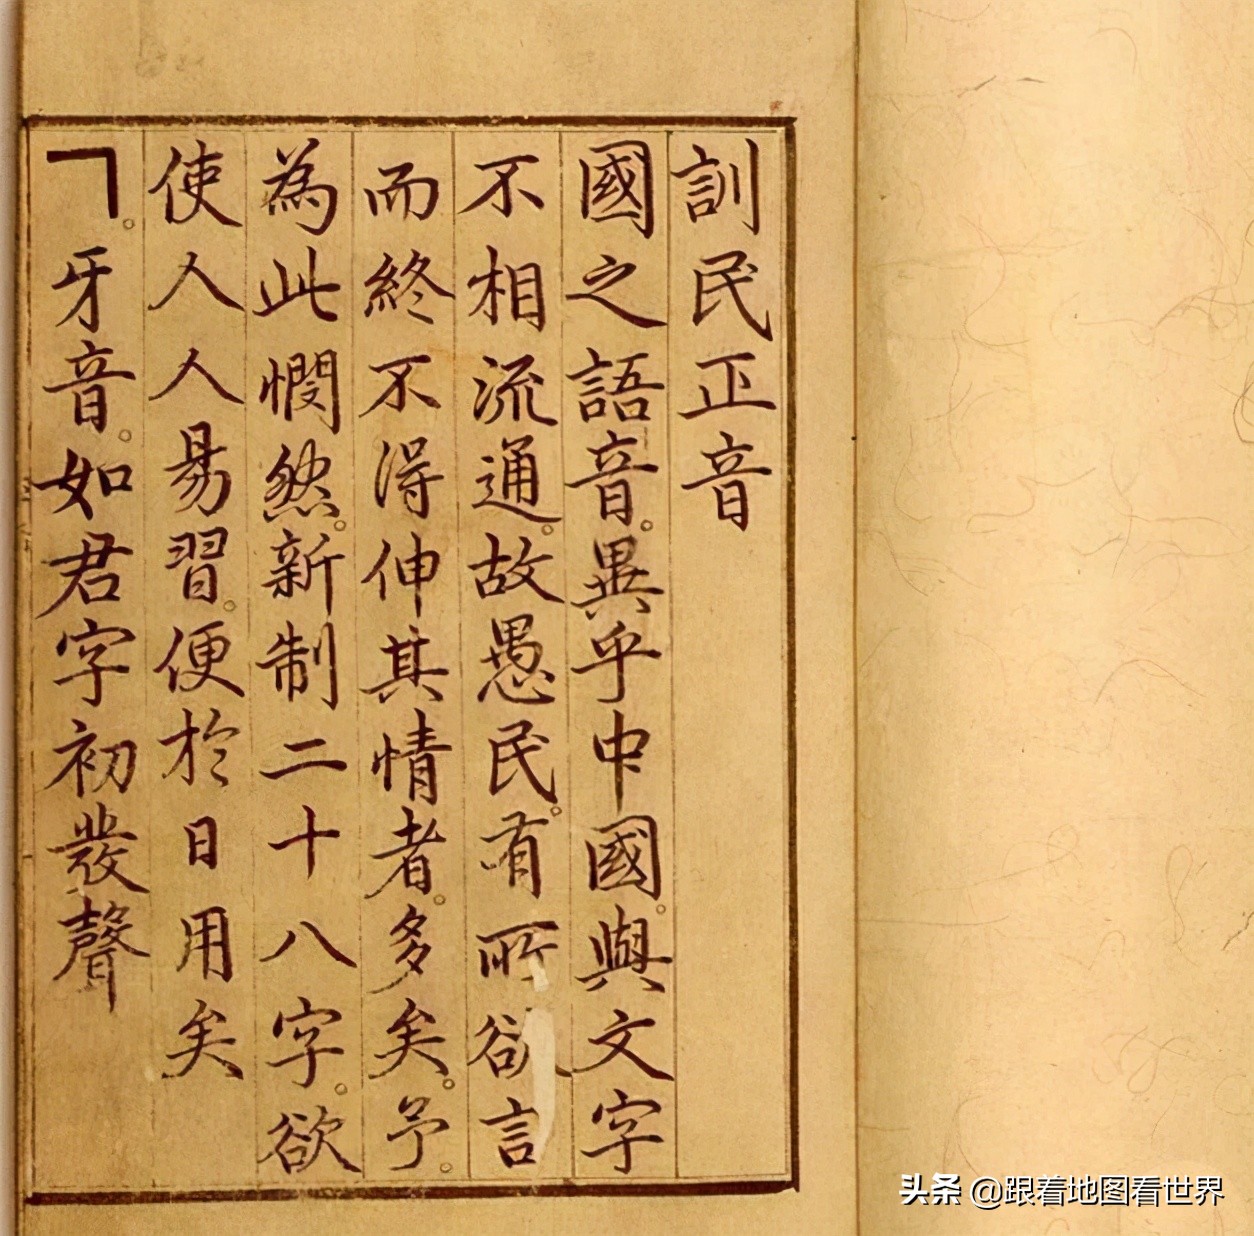 訓民正音
國之語音。異乎中國。與文字
不相流通。故愚民。有所欲言
而終不得伸其情者。多矣。予。
為此憫然。新制二十八字。欲
使人人易習。便於日用矣
ㄱ。牙音。如君字初發聲
头条 @跟着地图看世界